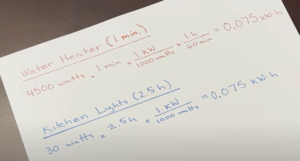 Water Heater (1 min.)
4500 watts × 1 min × 1 kW / 1000 watts × 1 h / 60 min = 0.075 kW·h
Kitchen Lights (2.5 h)
30 watts × 2.5 h × 1 kW / 1000 watts = 0.075 kW·h